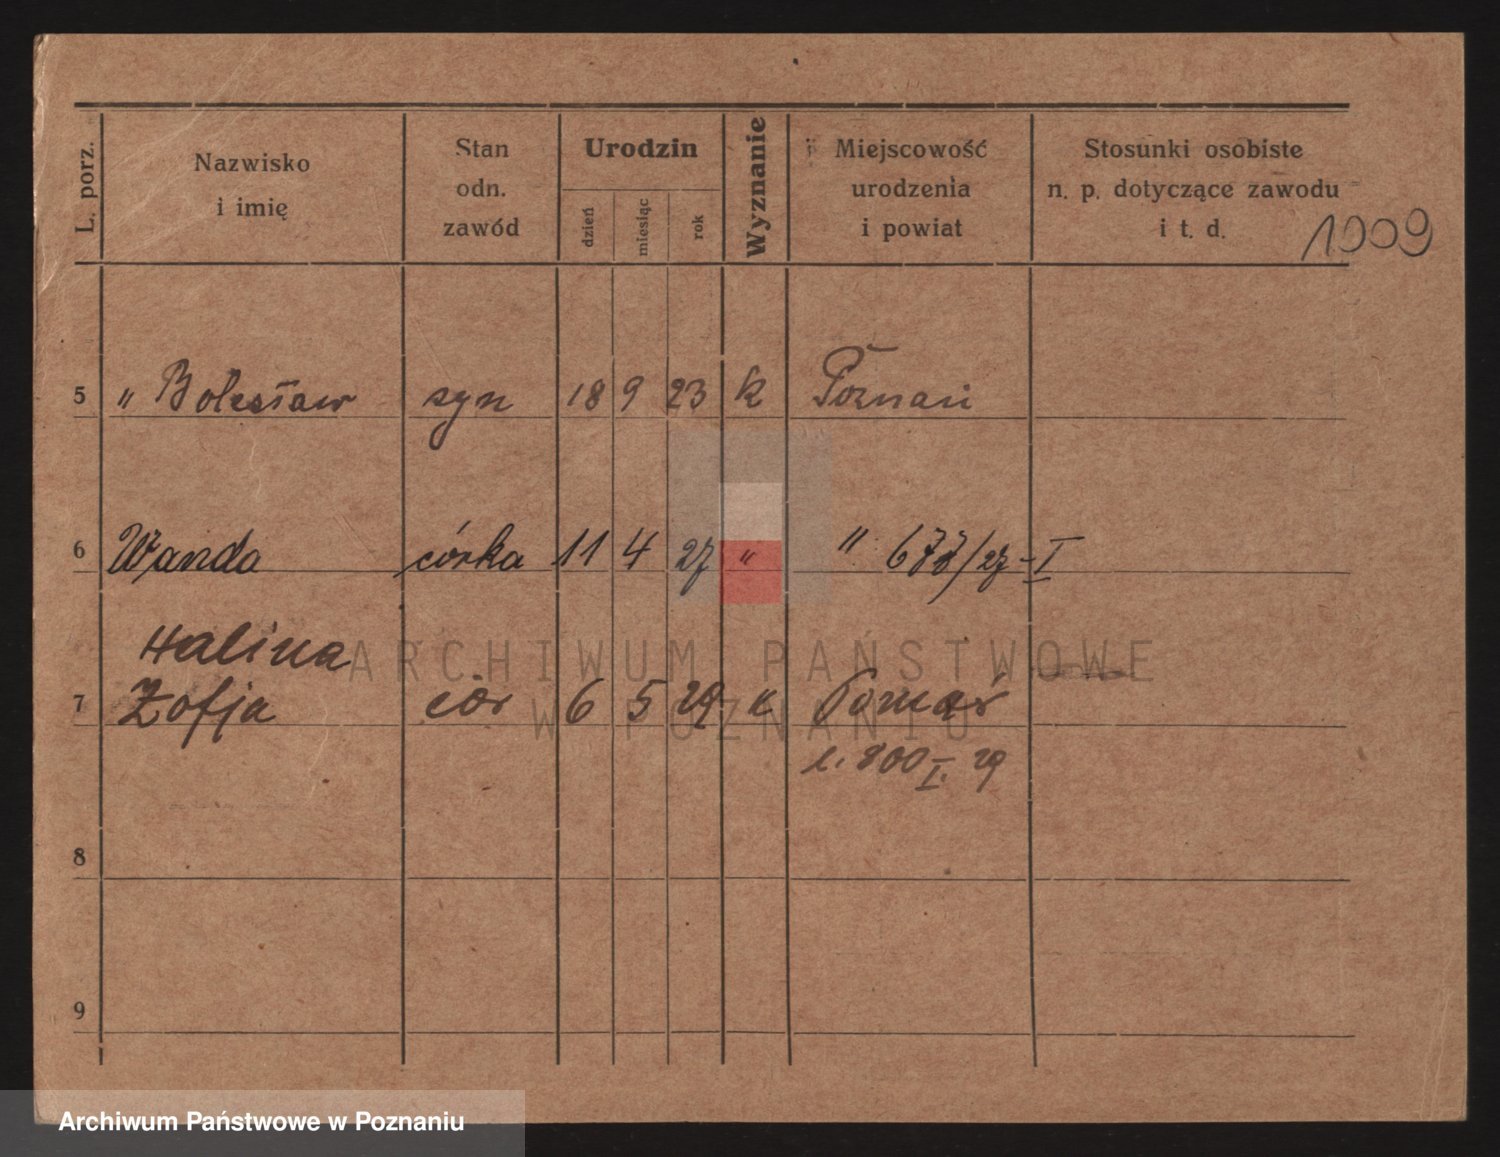 L. porz.
Nazwisko
i imię
Stan
odn.
zawód
Urodzin
dzień
miesiąc
rok
Wyznanie
Miejscowość
urodzenia
i powiat
Stosunki osobiste
n. p. dotyczące zawodu
i t. d.
1009
5 " Bolesław syn 18 9 23 k Poznań
6 Wanda córka 11 4 27 " " 677/27-I
Halina
7 Zofja cór 6 5 29 k Poznań
l. 800 I. 29
8
9
ARCHIWUM PAŃSTWOWE
W POZNANIU
Archiwum Państwowe w Poznaniu